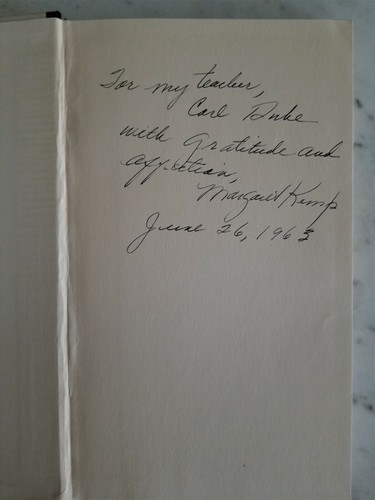 For my teacher,
Carl Duke
with gratitude and
affection,
Margaret Kemp
June 26, 1963